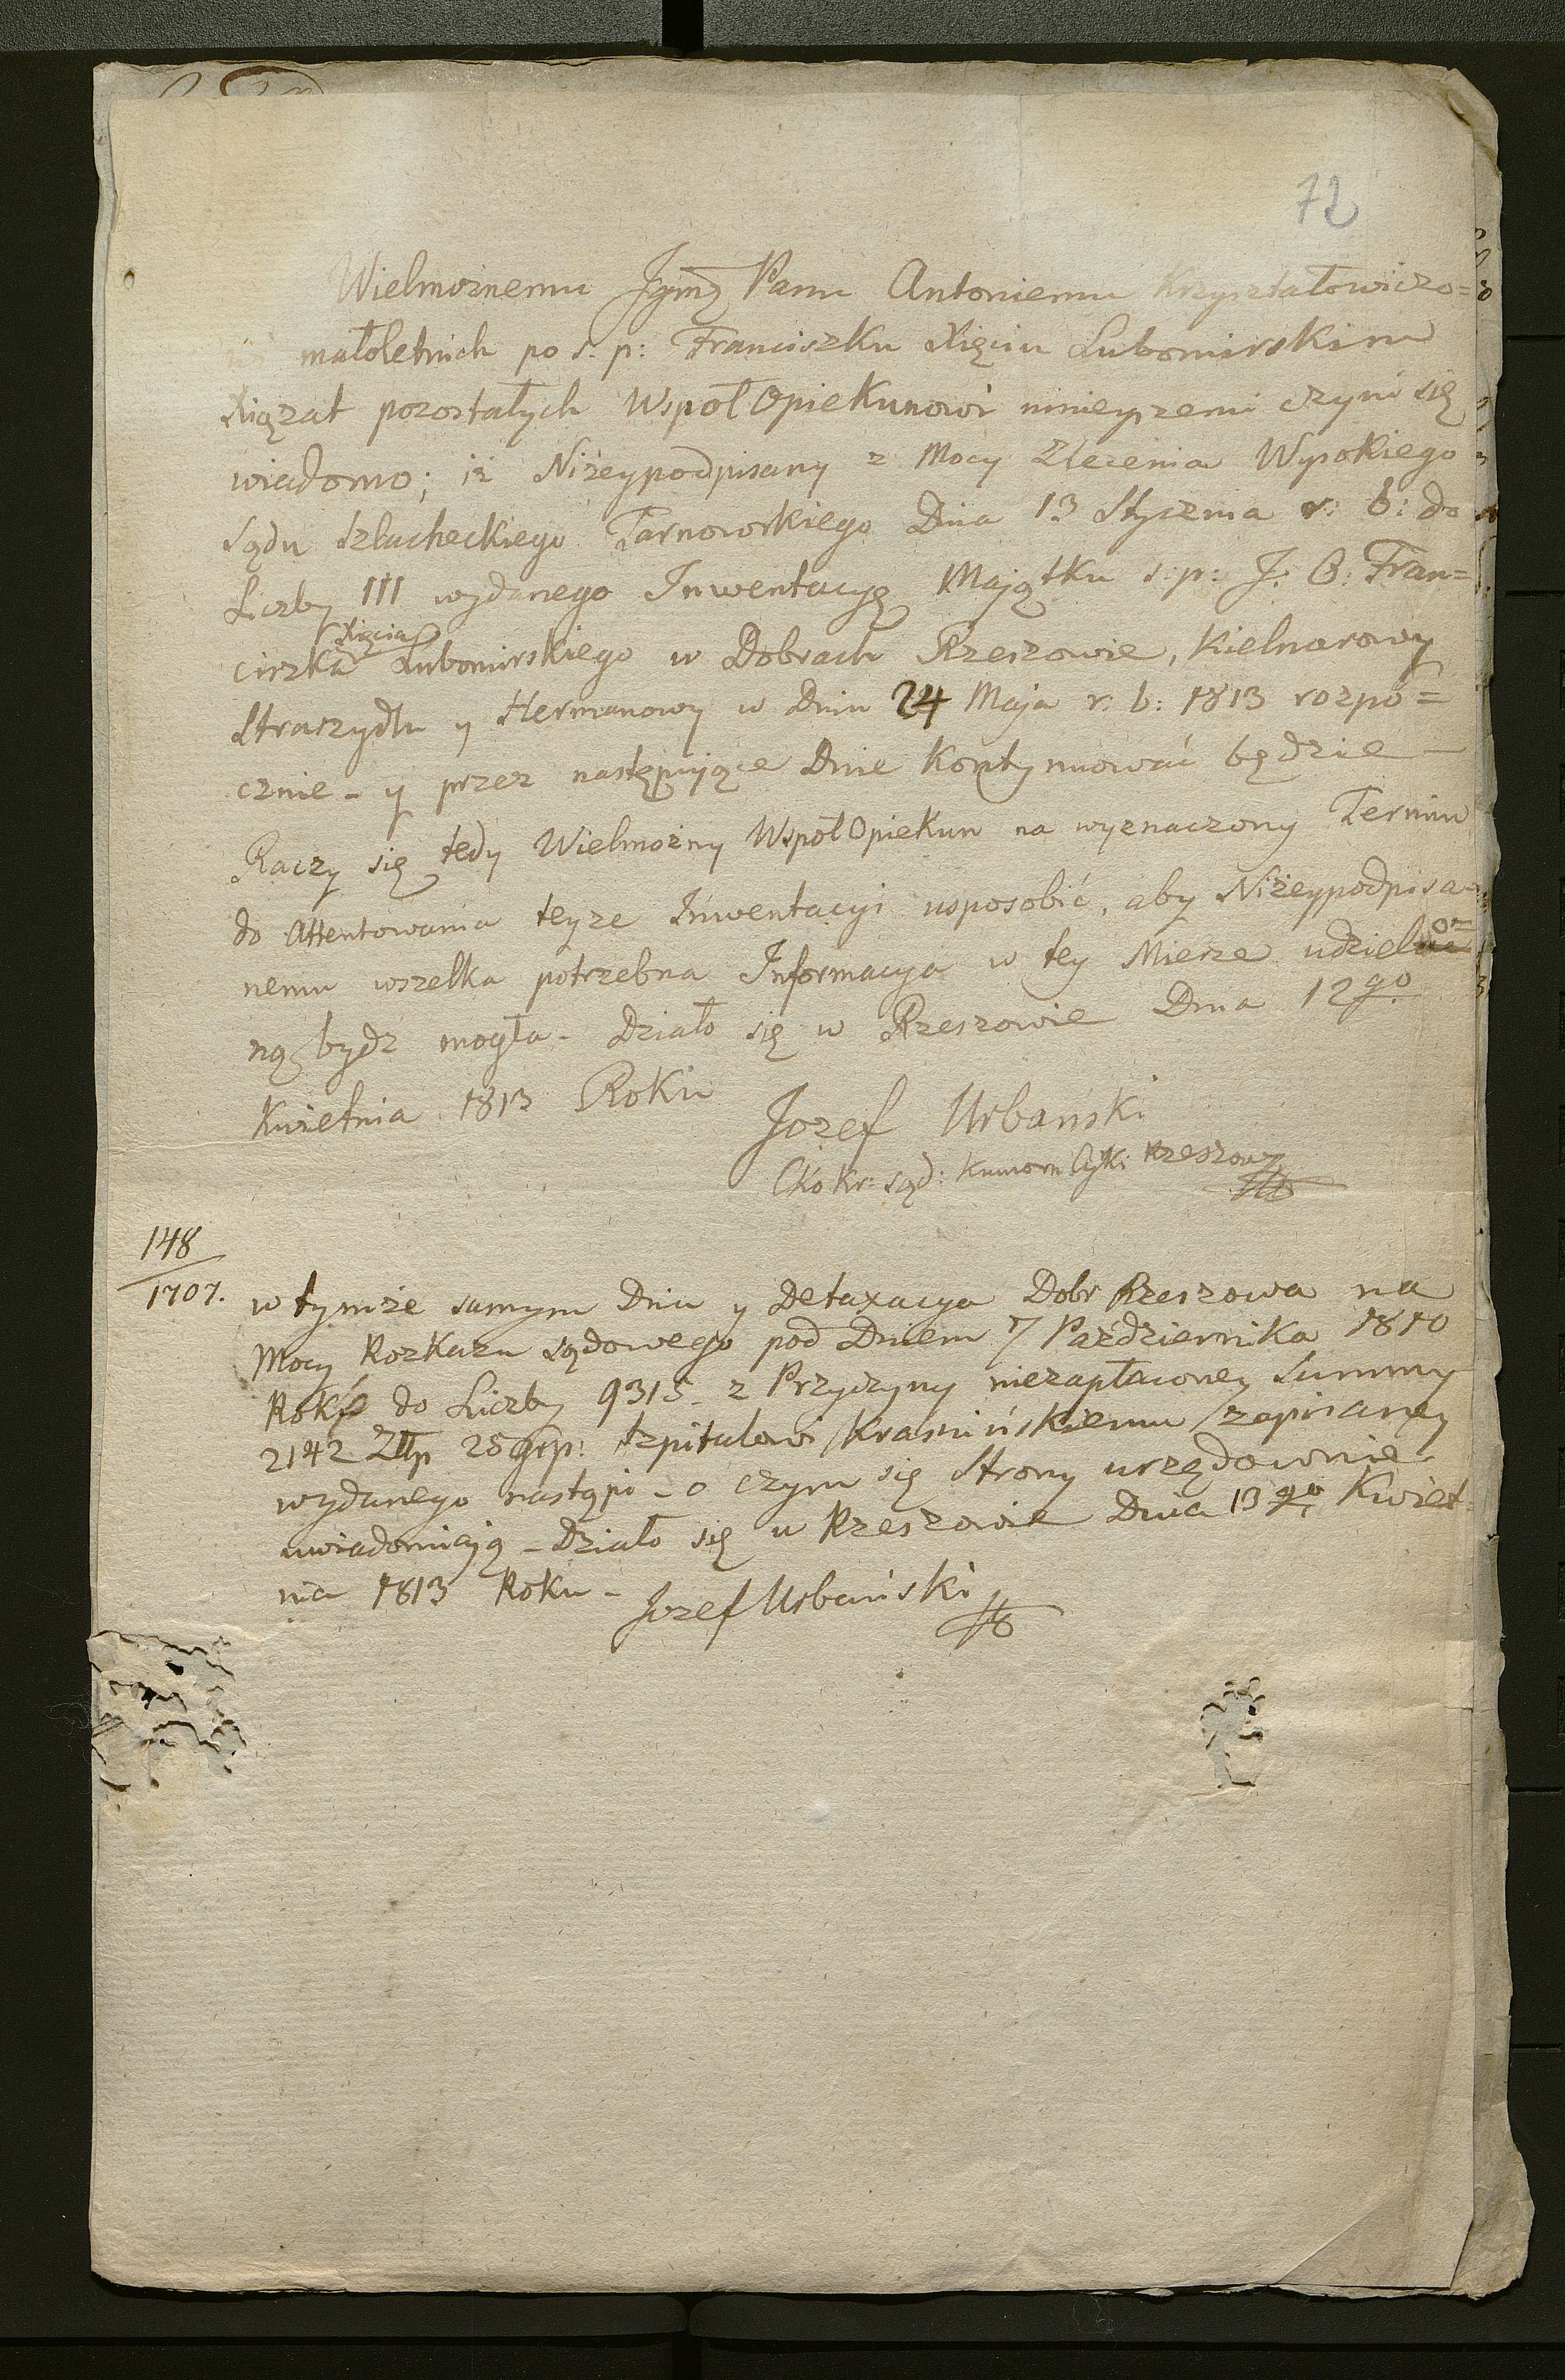 72
Wielmożnemu Jgmz Panu Antoniemu Krzyształowiczo=
wi małoletnich po s: p: Franciszku Xięciu Lubomirskim
Xiążat pozostałych WspołOpiekunowi ninieyszemi czyni się
wiadomo; iż Niżeypodpisany z Mocy Zlecenia Wysokiego
Sądu Szlacheckiego Tarnowskiego Dnia 13 Stycznia r: b: do
Liczby 111 wydanego Inwentacyę Majątku s: p: J: O: Fran=
Xięcia
ciszka Lubomirskiego w Dobrach Rzeszowie, Kielnarowy
Straszydlu y Hermanowy w Dniu 24 Maja r: b: 1813 rozpo=
cznie - y przez następujące Dnie kontynuować będzie -
Raczy się tedy Wielmożny WspołOpiekun na wyznaczony Termin
do Attentowania teyże Inwentacyi usposobić, aby Niżeypodpisa-
nemu wszelka potrzebna Informacya w tey Mierze udzielo=
ną bydz mogła - Działo się w Rzeszowie Dnia 12go
Kwietnia 1813 Roku
Jozef Urbański
CKo Kr: Sąd: Kumorn Cyki Rzeszow
148
1707.
w tymże samym Dniu y Detaxacya Dobr Rzeszowa na
Mocy Rozkazu sądowego pod Dniem 7 Października 1810
Roku do Liczby 9315 z Przyczyny niezapłaconey Summy
2142 Złłp 25 grp: Szpitalowi Krasnińskiemu zapisaney
wydanego nastąpi - o czym się Strony urzędownie
uwiadomiają - Działo się w Rzeszowie Dnia 13go Kwiet=
nia 1813 Roku - Jozef Urbański